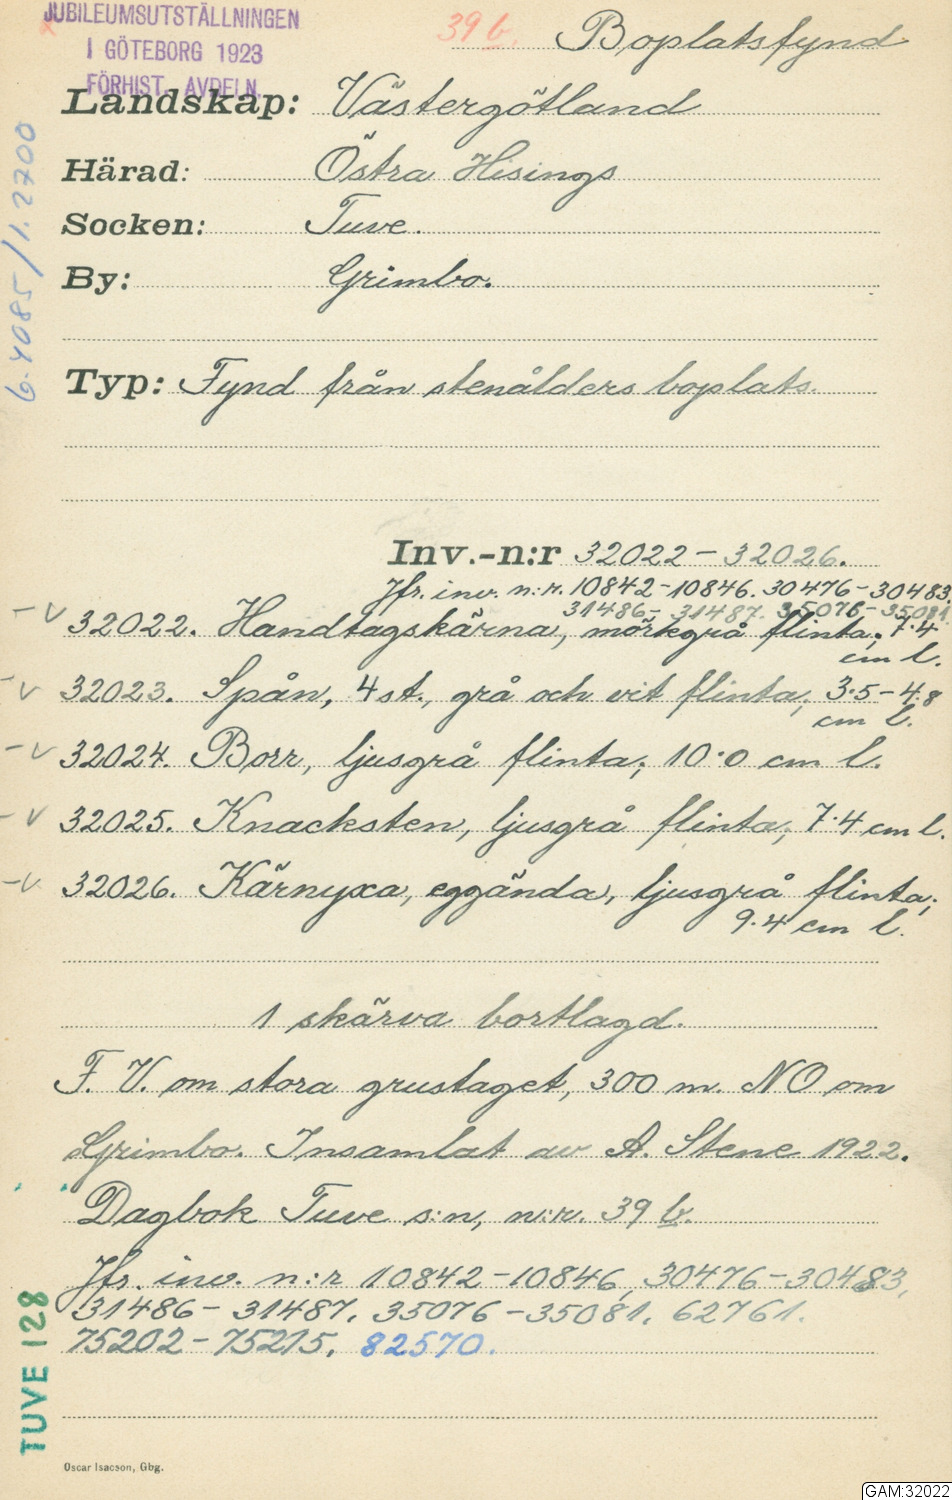 JUBILEUMSUTSTÄLLNINGEN
I GÖTEBORG 1923
FÖRHIST. AVDELN.
39 b. Boplatsfynd
Landskap: Västergötland
Härad: Östra Hisings
Socken: Tuve.
By: Grimbo.
Typ: Fynd från stenålders boplats.
Inv.-n:r 32022-32026.
Jfr. inv. n:r. 10842-10846. 30476-30483.
31486-31487. 35076-35081.
32022. Handtagskärna, mörkgrå flinta; 7.4
cm l.
32023. Spån, 4 st., grå och vit flinta; 3.5-4.8
cm l.
32024. Borr, ljusgrå flinta; 10.0 cm l.
32025. Knacksten, ljusgrå flinta; 7.4 cm l.
32026. Kärnyxa, eggända, ljusgrå flinta;
9.4 cm l.
1 skärva bortlagd.
F. V. om stora grustaget, 300 m. NO om
Grimbo. Insamlat av A. Stene 1922.
Dagbok Tuve s:n, n:r. 39 b.
Jfr. inv. n:r 10842-10846, 30476-30483,
31486-31487, 35076-35081, 62761.
75202-75215, 82570.
TUVE 128
Oscar Isacson, Gbg.
GAM:32022